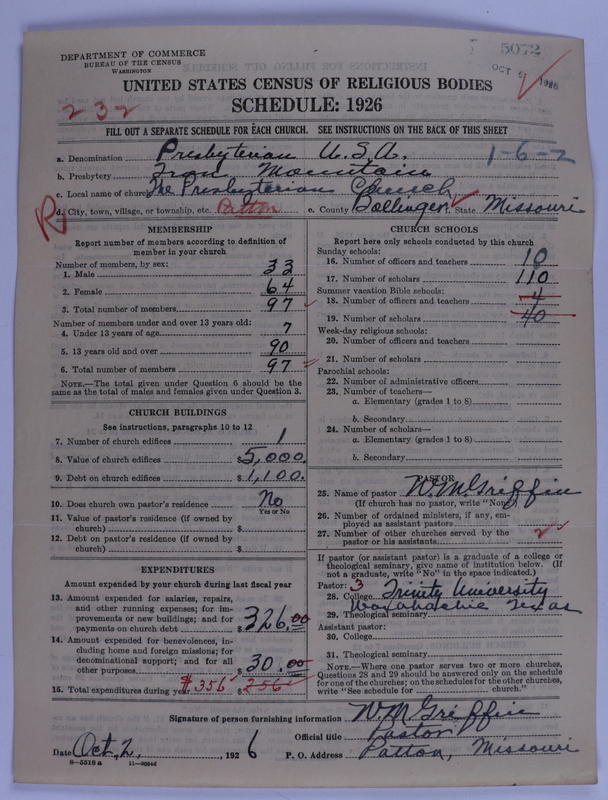 DEPARTMENT OF COMMERCE
BUREAU OF THE CENSUS
WASHINGTON
5072
OCT 5 1926
UNITED STATES CENSUS OF RELIGIOUS BODIES
SCHEDULE: 1926
232
FILL OUT A SEPARATE SCHEDULE FOR EACH CHURCH. SEE INSTRUCTIONS ON THE BACK OF THIS SHEET
a. Denomination Presbyterian U.S.A. 1-6-2
b. Presbytery Iron Mountain
c. Local name of church The Presbyterian Church
R
d. City, town, village, or township, etc. Patton e. County Bollinger f. State Missouri
MEMBERSHIP
Report number of members according to definition of
member in your church
Number of members, by sex:
1. Male 33
2. Female 64
3. Total number of members 97
Number of members under and over 13 years old:
4. Under 13 years of age 7
5. 13 years old and over 90
6. Total number of members 97
NOTE.—The total given under Question 6 should be the
same as the total of males and females given under Question 3.
CHURCH BUILDINGS
See instructions, paragraphs 10 to 12
7. Number of church edifices 1
8. Value of church edifices $5,000.
9. Debt on church edifices $1,100.
10. Does church own pastor's residence No
Yes or No
11. Value of pastor's residence (if owned by
church) $
12. Debt on pastor's residence (if owned by
church) $
EXPENDITURES
Amount expended by your church during last fiscal year
13. Amount expended for salaries, repairs,
and other running expenses; for im-
provements or new buildings; and for
payments on church debt $326.00
14. Amount expended for benevolences, in-
cluding home and foreign missions; for
denominational support; and for all
other purposes $30.00
15. Total expenditures during year $356 $256
CHURCH SCHOOLS
Report here only schools conducted by this church
Sunday schools:
16. Number of officers and teachers 10
17. Number of scholars 110
Summer vacation Bible schools:
18. Number of officers and teachers 4
19. Number of scholars 40
Week-day religious schools:
20. Number of officers and teachers
21. Number of scholars
Parochial schools:
22. Number of administrative officers
23. Number of teachers—
a. Elementary (grades 1 to 8)
b. Secondary
24. Number of scholars—
a. Elementary (grades 1 to 8)
b. Secondary
PASTOR
25. Name of pastor W. M. Griffin
(If church has no pastor, write "None")
26. Number of ordained ministers, if any, em-
ployed as assistant pastors
27. Number of other churches served by the
pastor or his assistants 2
If pastor (or assistant pastor) is a graduate of a college or
theological seminary, give name of institution below. (If
not a graduate, write "No" in the space indicated.)
Pastor: 3
28. College Trinity University
Waxahachie Texas
29. Theological seminary
Assistant pastor:
30. College
31. Theological seminary
NOTE.—Where one pastor serves two or more churches,
Questions 28 and 29 should be answered only on the schedule
for one of the churches; on the schedules for the other churches,
write "See schedule for church."
Signature of person furnishing information W. M Griffin
Official title Pastor
Date Oct. 2, 1926 P. O. Address Patton, Missouri
8-5518a 11-9064d